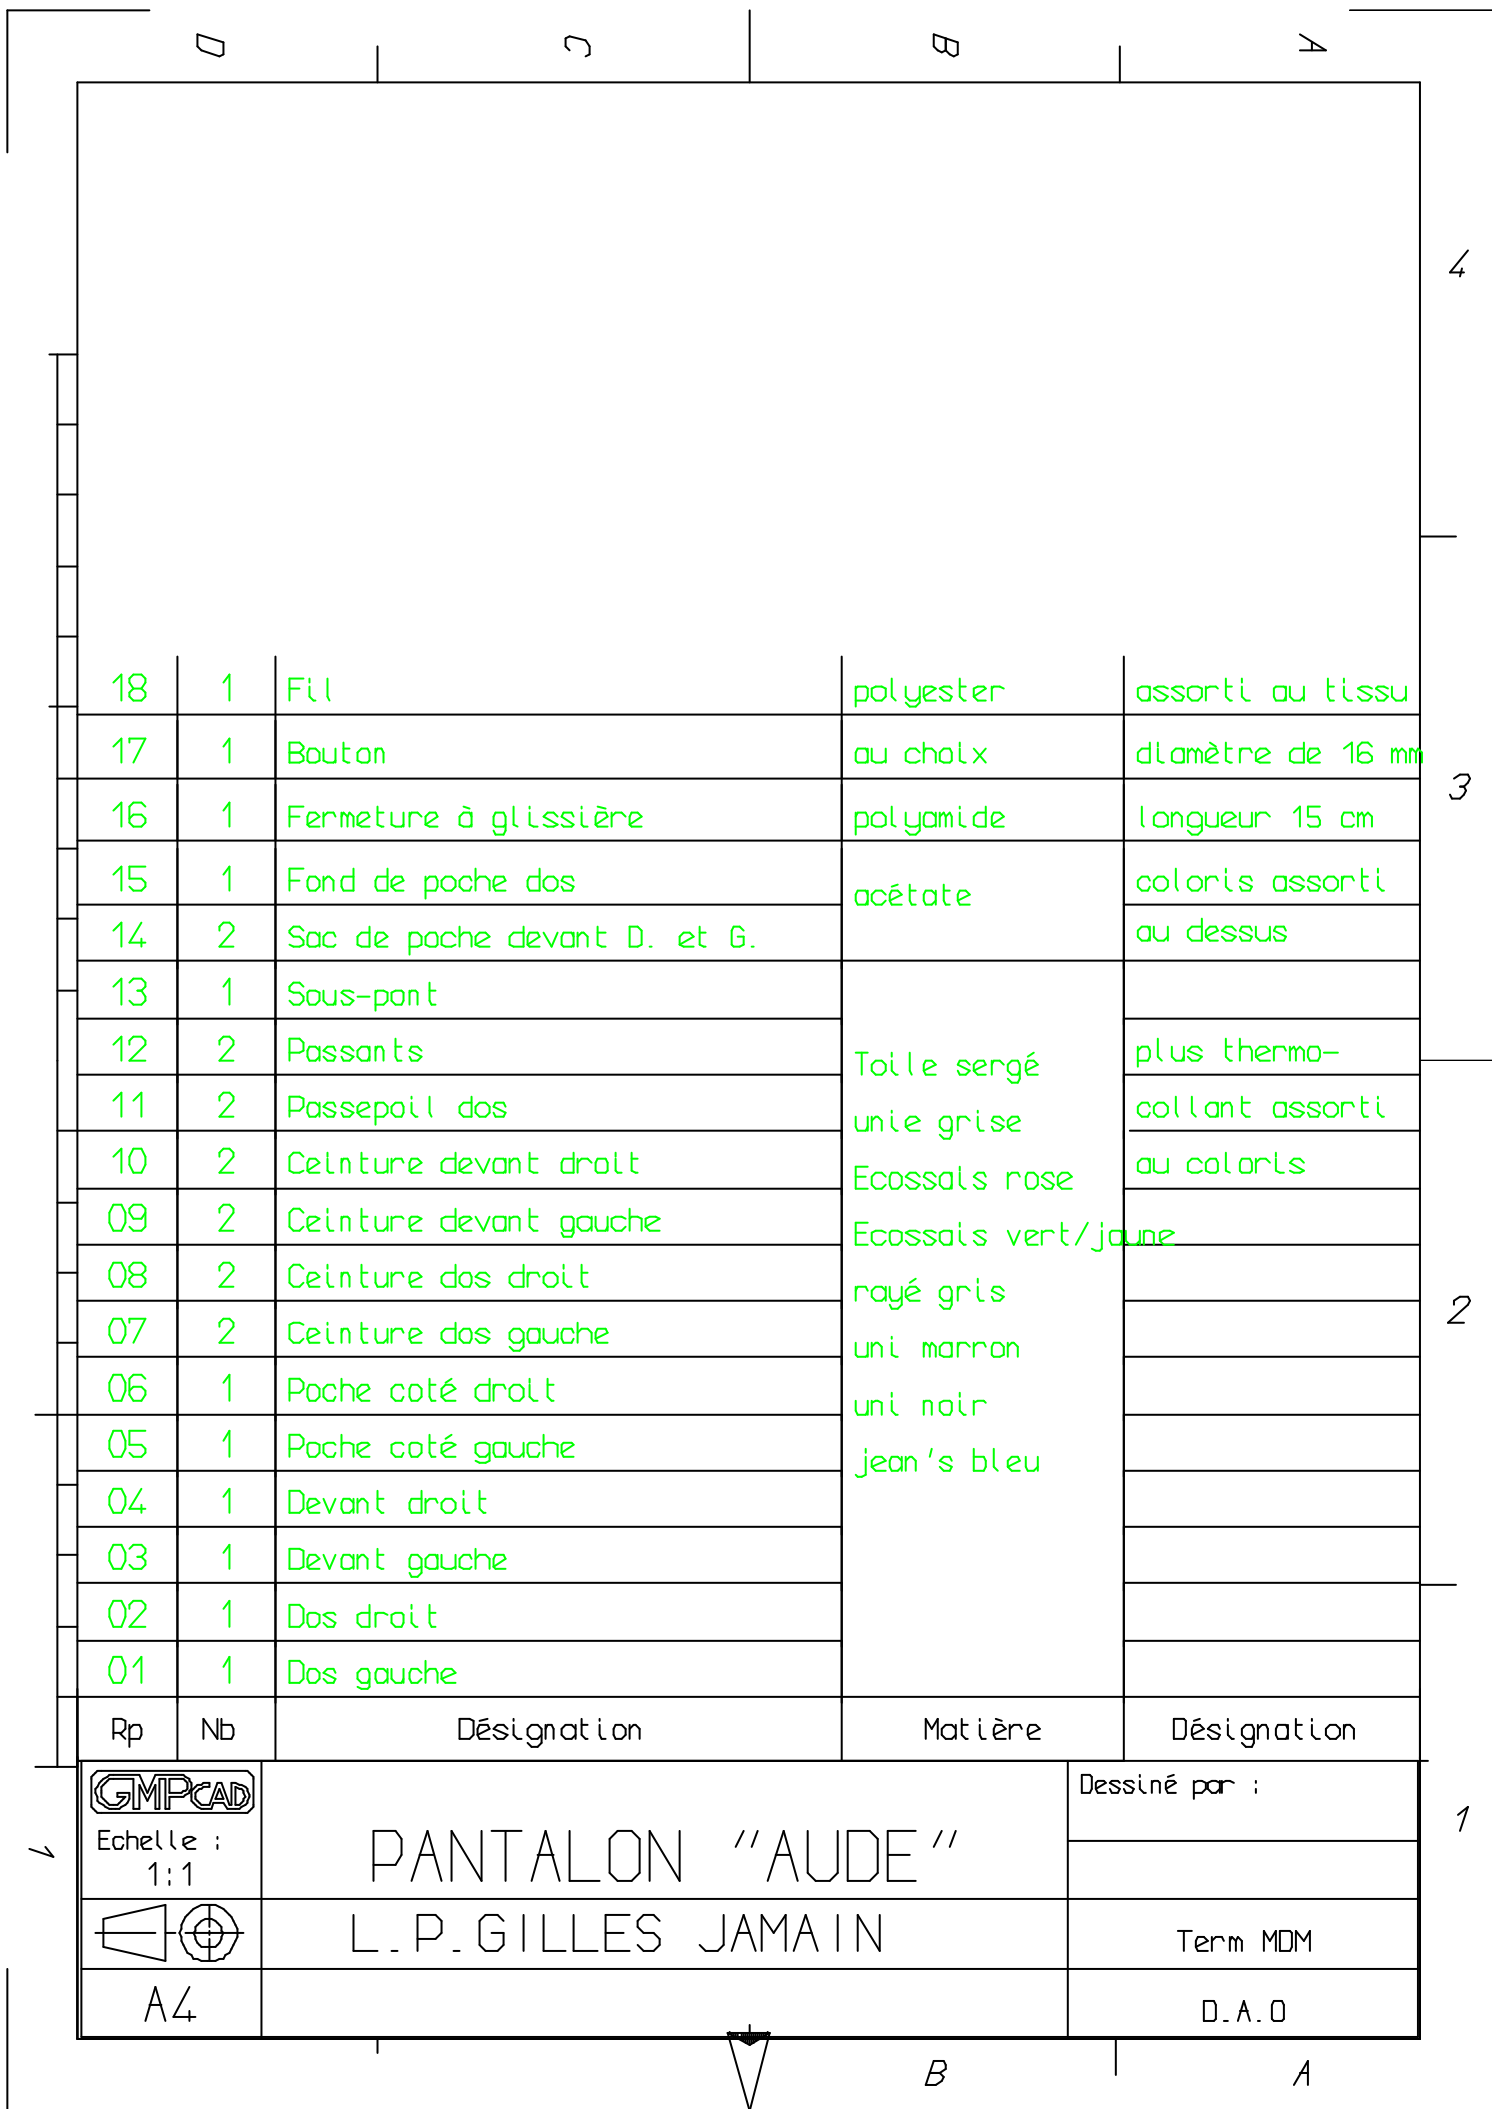 D C B A
4
18 1 Fil polyester assorti au tissu
17 1 Bouton au choix diamètre de 16 mm
3
16 1 Fermeture à glissière polyamide longueur 15 cm
15 1 Fond de poche dos acétate coloris assorti
14 2 Sac de poche devant D. et G. au dessus
13 1 Sous-pont
12 2 Passants Toile sergé plus thermo-
11 2 Passepoil dos unie grise collant assorti
10 2 Ceinture devant droit Ecossais rose au coloris
09 2 Ceinture devant gauche Ecossais vert/jaune
08 2 Ceinture dos droit rayé gris
2
07 2 Ceinture dos gauche uni marron
06 1 Poche coté droit uni noir
05 1 Poche coté gauche jean's bleu
04 1 Devant droit
03 1 Devant gauche
02 1 Dos droit
01 1 Dos gauche
Rp Nb Désignation Matière Désignation
GMPCAD Dessiné par :
1
Echelle :
1:1
PANTALON "AUDE"
1
L.P.GILLES JAMAIN Term MDM
A4 D.A.O
B A